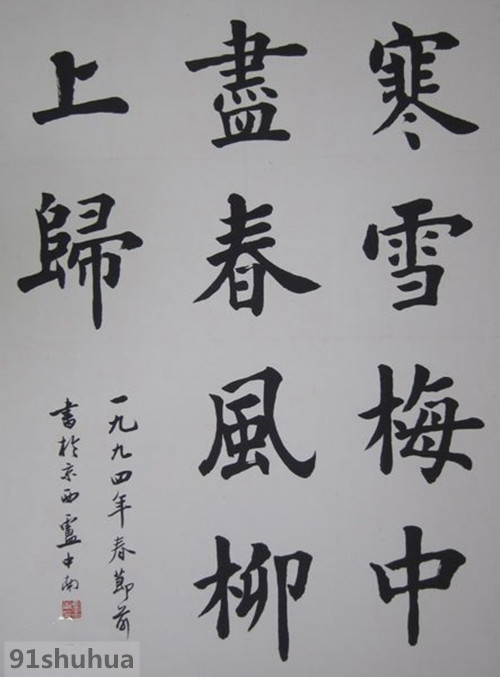 寒雪梅中
盡春風柳
上歸
一九九四年春節前
書於京西盧中南
91shuhua